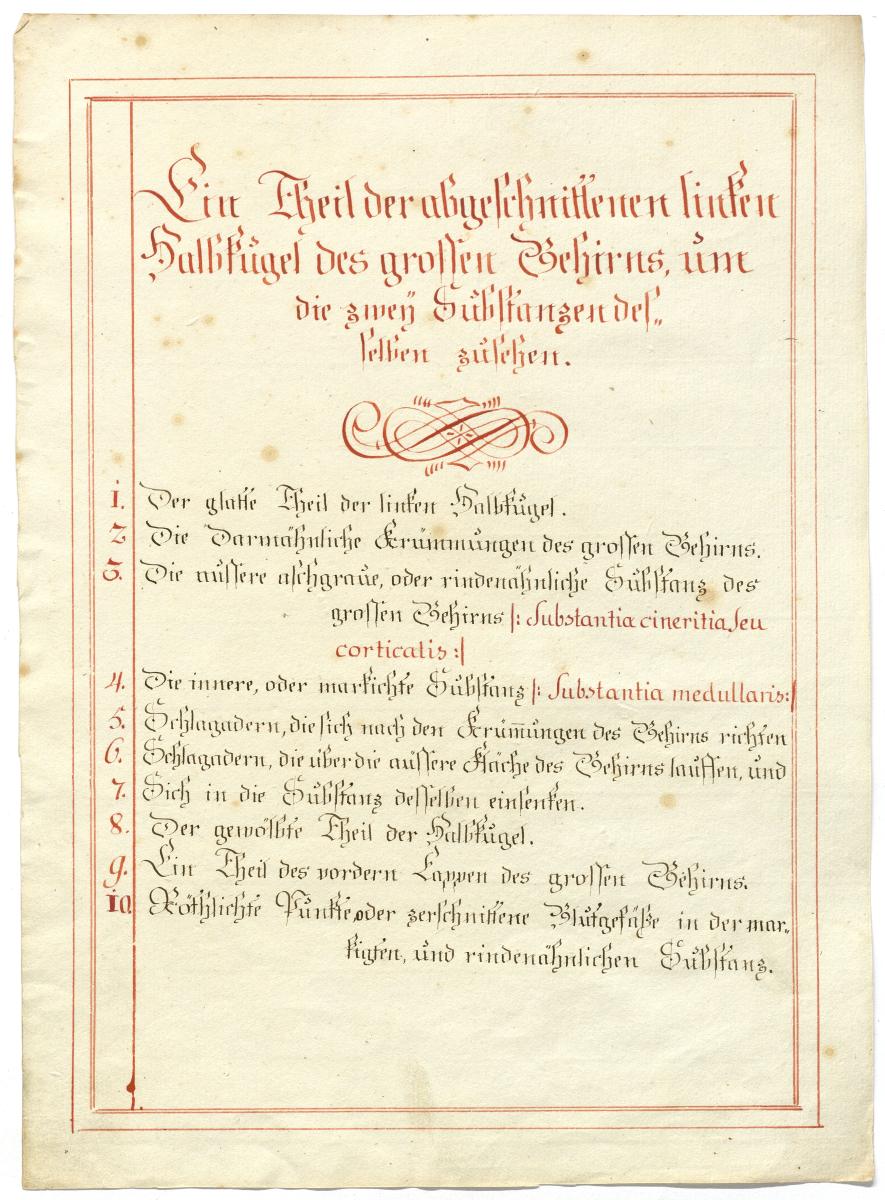 Ein Theil der abgeschnittenen linken
Halbkugel des grossen Gehirns, um
die zweÿ Substanzen des„
selben zusehen.
1. Der glatte Theil der linken Halbkugel.
2 Die Darmähnliche Krümmungen des grossen Gehirns.
3. Die aussere aschgraue, oder rindenähnliche Substanz des
grossen Gehirns |: Substantia cineritia, seu
corticalis :|
4. Die innere, oder markichte Substanz |: Substantia medullaris :|
5. Schlagadern, die sich nach den Krum̅ungen des Gehirns richten
6. Schlagadern, die über die aussere Fläche des Gehirns lauffen, und
7. Sich in die Substanz desselben einsenken.
8. Der gewölbte Theil der Halbkugel.
9. Ein Theil des vordern Lappen des grossen Gehirns.
10 Röthlichte Punkte, oder zerschnittene Blutgefäße in der mar„
kigten, und rindenähnlichen Substanz.